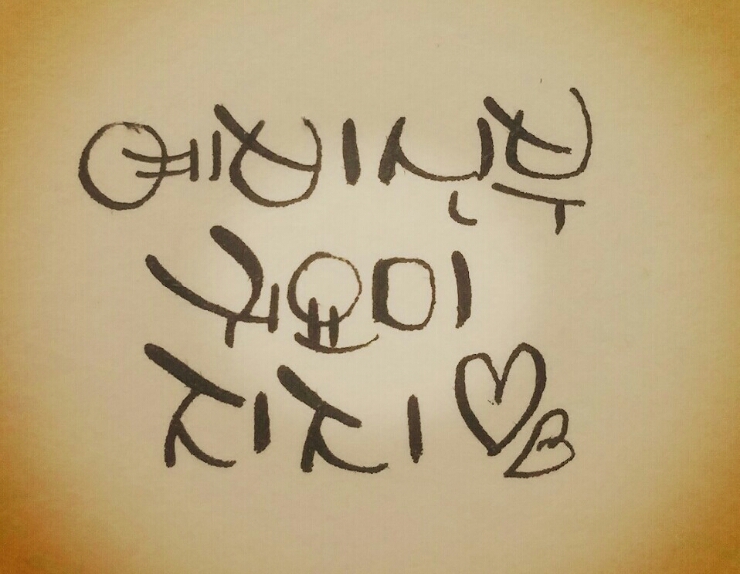 예비신부
귀요미
지지♡♡